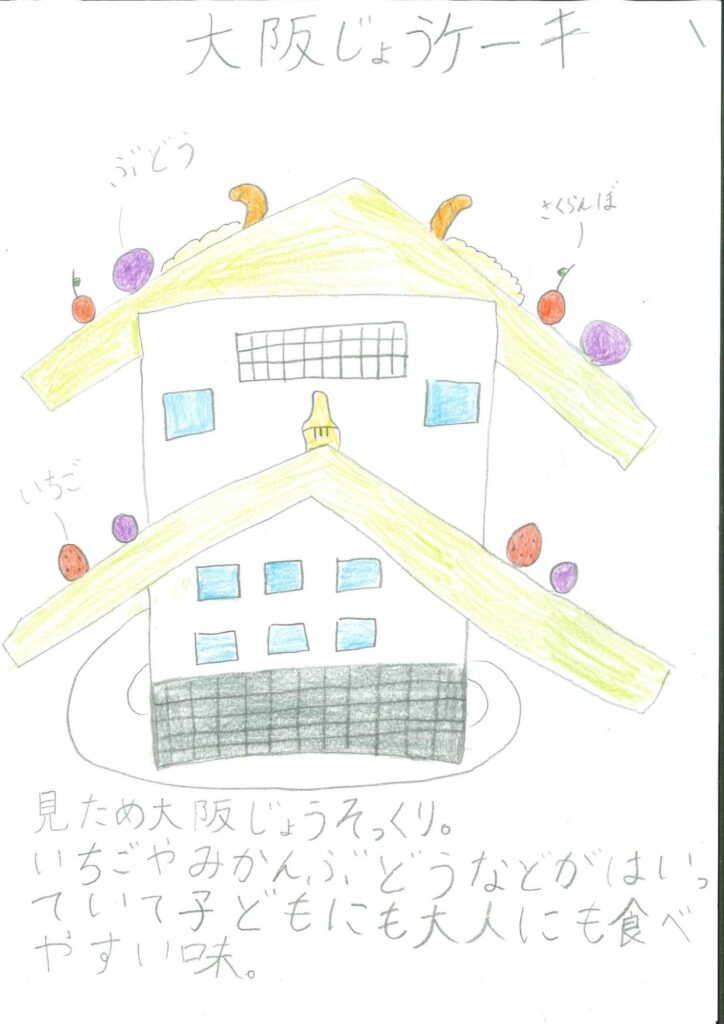 大阪じょうケーキ
ぶどう
さくらんぼ
いちご
見ため大阪じょうそっくり。
いちごやみかん、ぶどうなどがはいっ
ていて子どもにも大人にも食べ
やすい味。